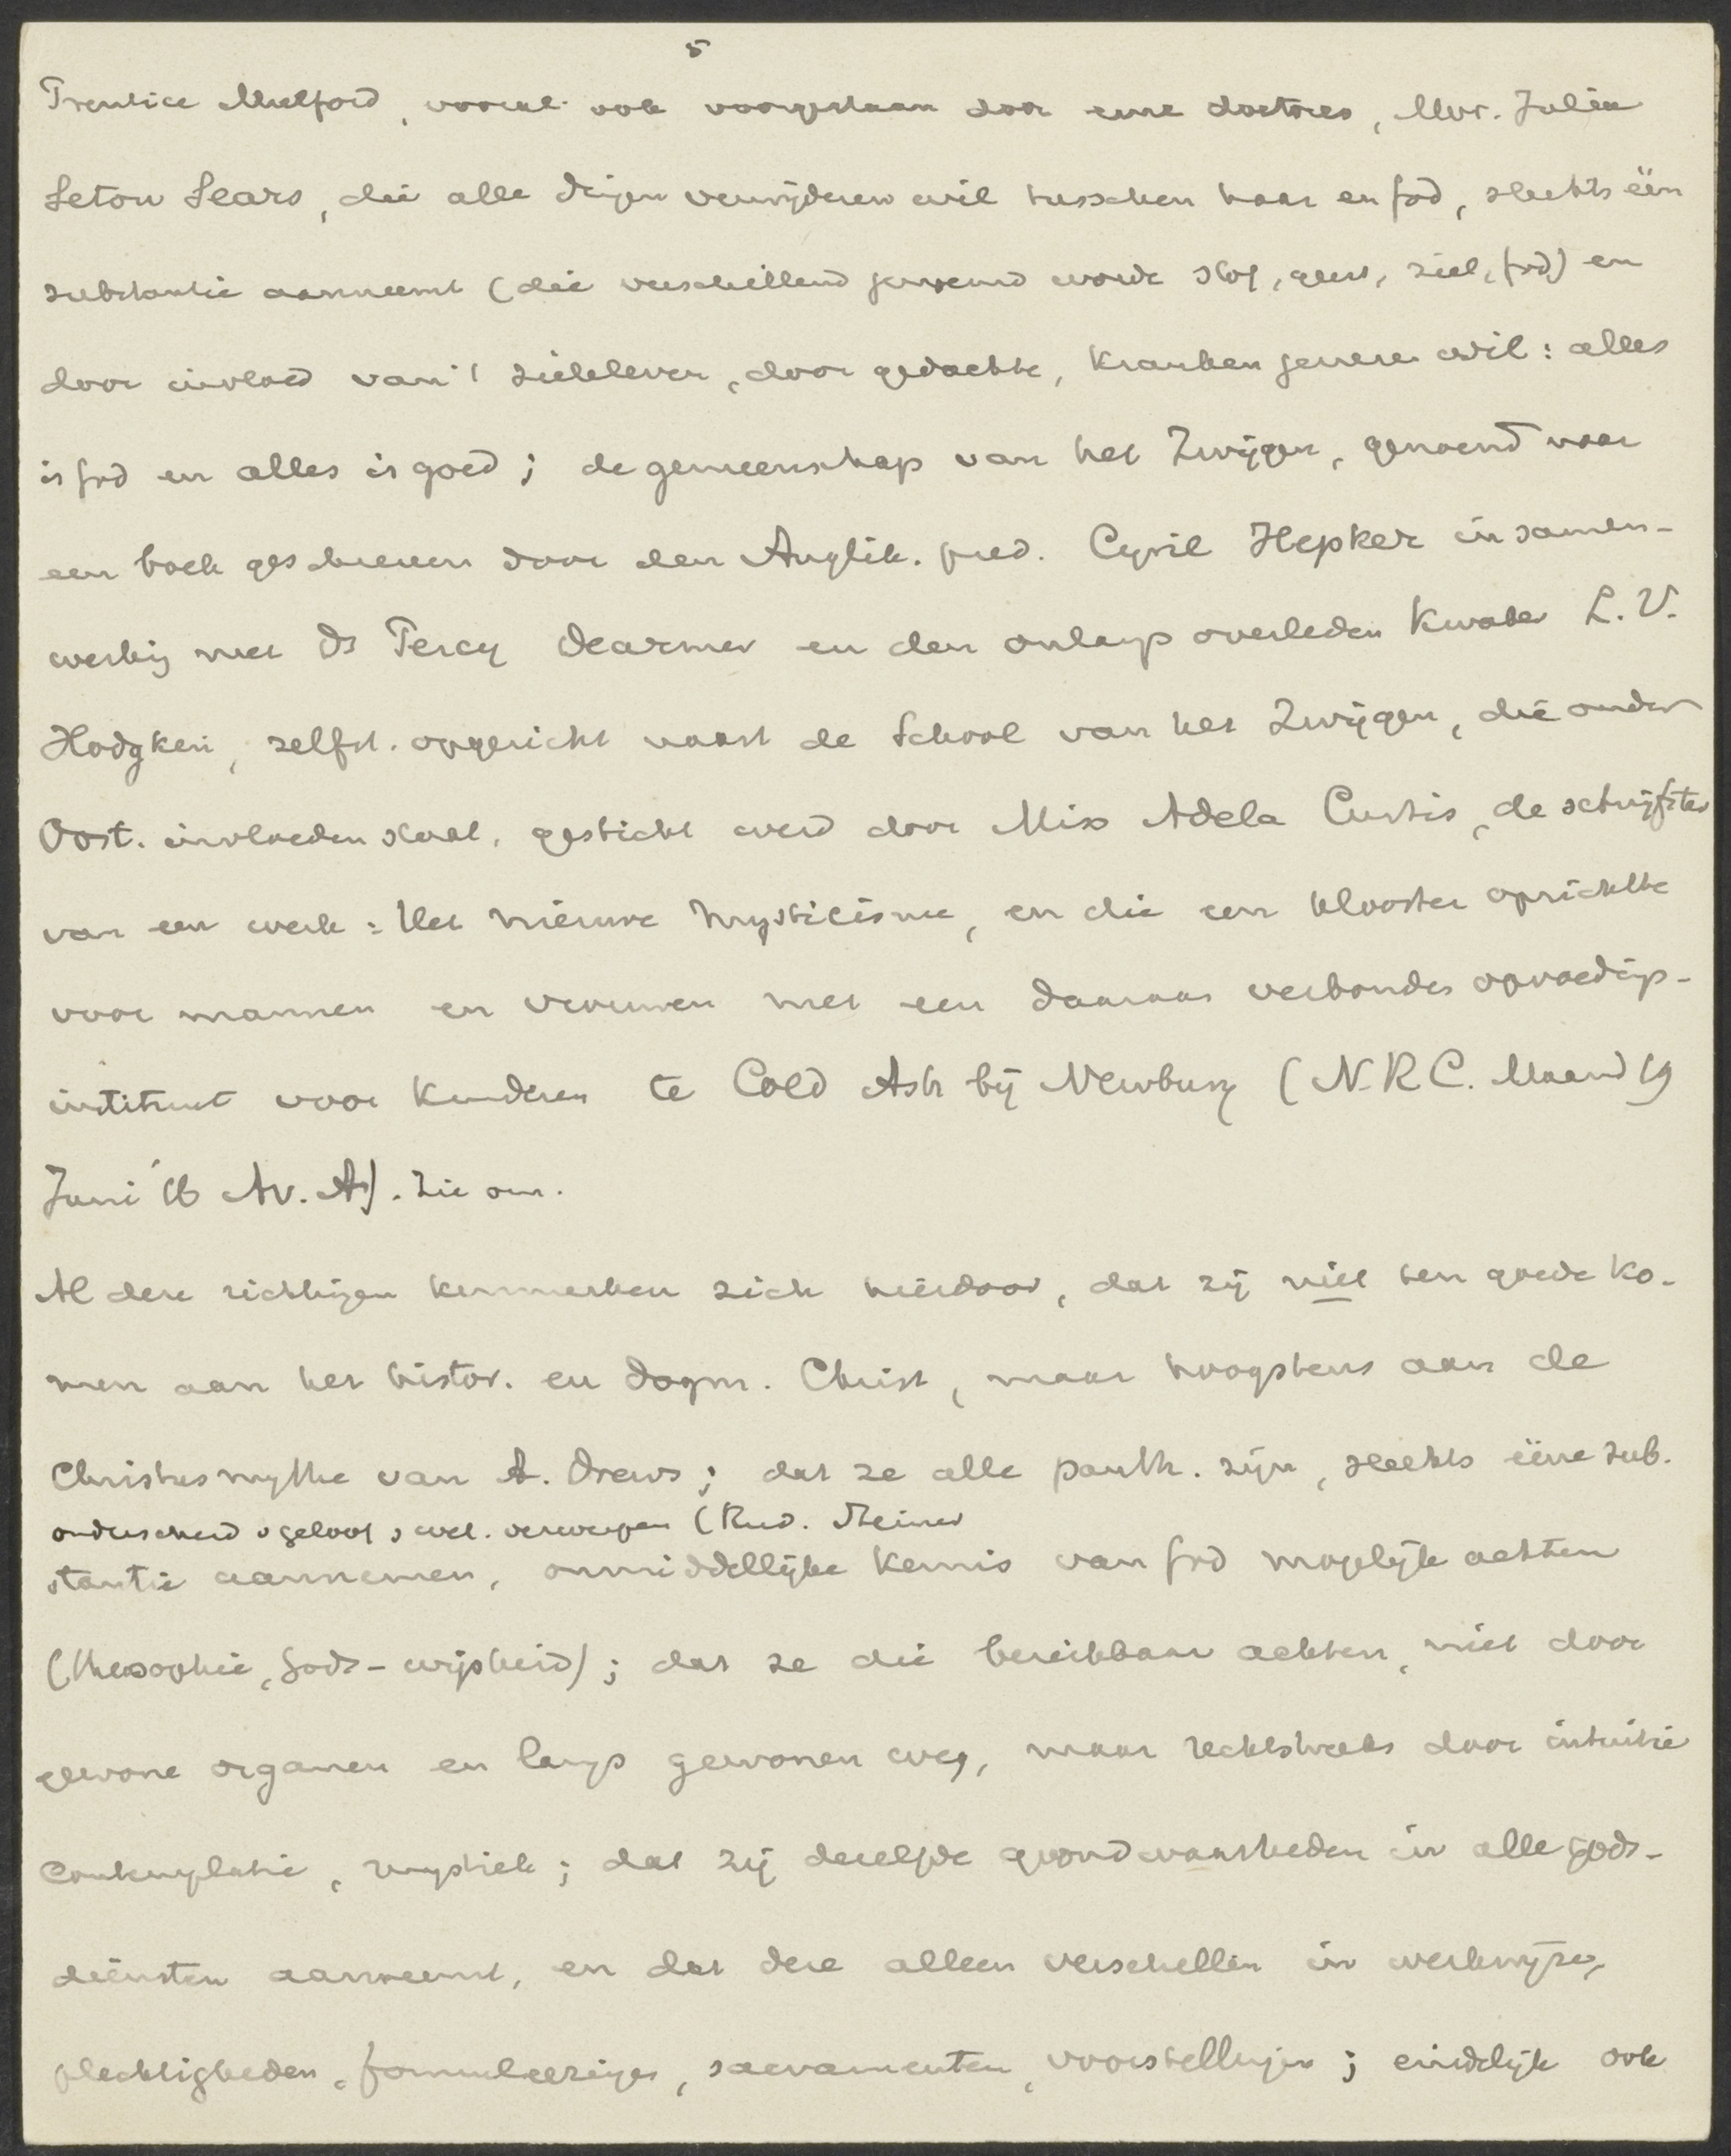 5
Prentice Mulford, vooral ook voorgestaan door eene doctores, Mvr. Julia
Seton Sears, die alle dingen verwijderen wil tusschen haar en God, slechts één
substantie aanneemt (die verschillend genoemd wordt stof, geest, ziel, God) en
door invloed van 't zieleleven, door gedachte, kranken genezen wil: alles
is God en alles is goed; de gemeenschap van het Zwijgen, genoemd naar
een boek geschreven door den Anglik. pred. Cyril Hepker in samen-
werking met Ds Percy Dearmer en den onlangs overleden Kwaker L. V.
Hodgkin, zelfst. opgericht naast de School van het Zwijgen, die onder
Oost. invloeden staat, gesticht werd door Miss Adela Curtis, de schrijfster
van een werk: Het nieuwe Mysticisme, en die een klooster oprichtte
voor mannen en vrouwen met een daaraan verbonden opvoedings-
instituut voor kinderen te Cold Ash bij Newbury (N.R.C. Maand 19
Juni '16 Av. A). Zie om.
Al deze richtingen kenmerken zich hierdoor, dat zij niet ten goede ko-
men aan het histor. en dogm. Christ, maar hoogstens aan de
Christusmythe van A. Drews; dat ze alle panth. zijn, slechts ééne sub-
onderscheid v geloof v wet. verwerpen (Rud. Steiner
stantie aannemen, onmiddellijke kennis van God mogelijk achten
(theosophie, Gods-wijsheid); dat ze die bereikbaar achten, niet door
gewone organen en langs gewonen weg, maar rechtstreeks door intuitie
contemplatie, mystiek; dat zij dezelfde grondwaarheden in alle gods-
diensten aanneemt, en dat deze alleen verschillen in werkwijze,
plechtigheden, formuleeringen, sacramenten, voorstellingen; eindelijk ook